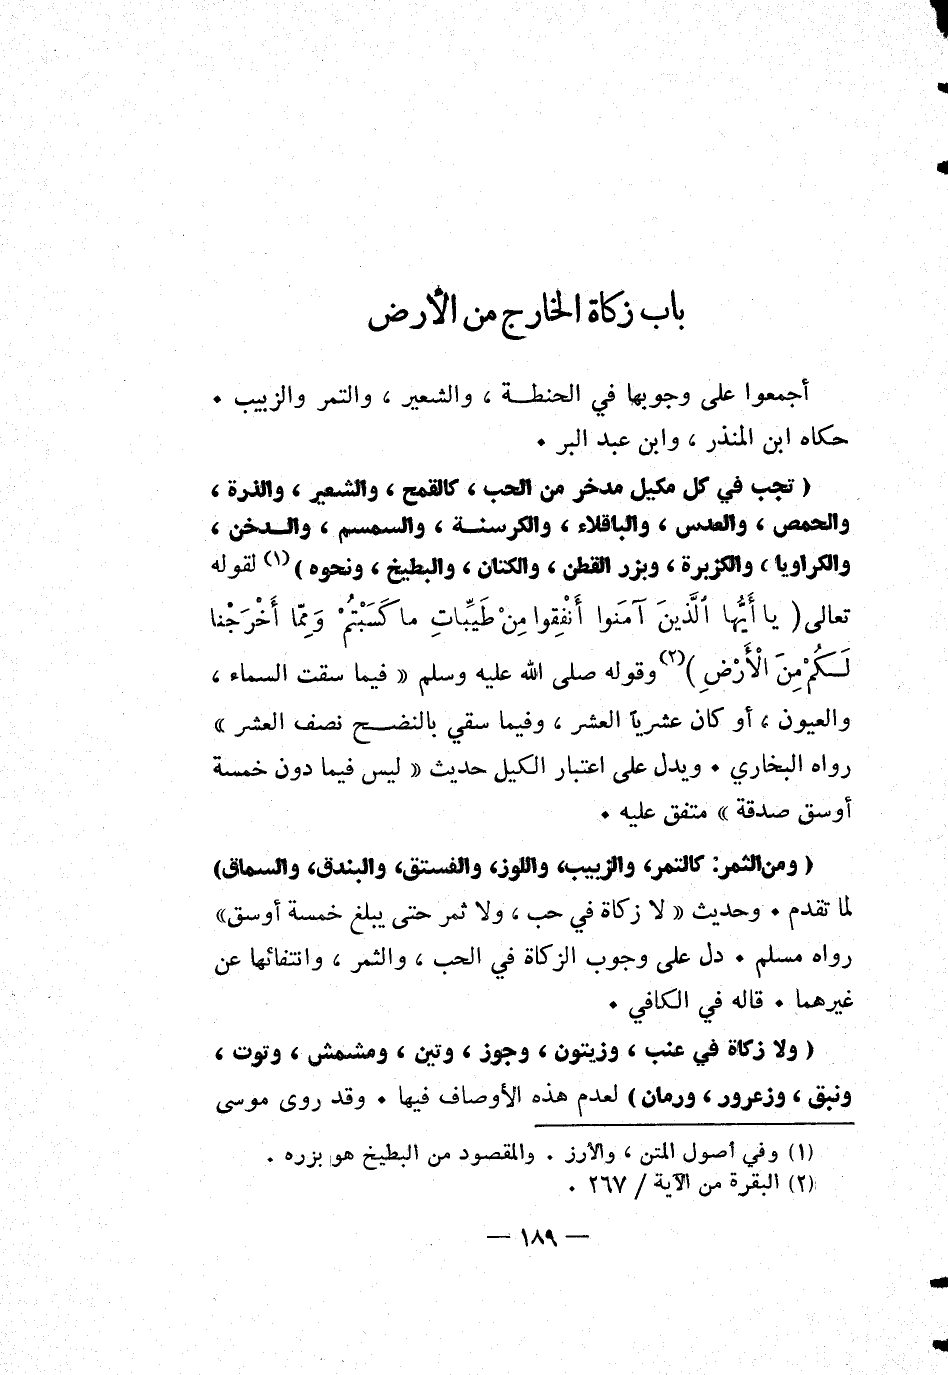 باب زكاة الخارج من الأرض
أجمعوا على وجوبها في الحنطــة ، والشعير ، والتمر والزبيب .
حكاه ابن المنذر ، وابن عبد البر .
( تجب في كل مكيل مدخر من الحب ، كالقمح ، والشعير ، والذرة ،
والحمص ، والعدس ، والباقلاء ، والكرسنــة ، والسمسم ، والــدخن ،
والكراويا ، والكزبرة ، وبزر القطن ، والكتان ، والبطيخ ، ونحوه ) (١) لقوله
تعالى ( يا أَيُّها ٱلَّذينَ آمَنوا أَنْفِقوا مِنْ طَيِّباتِ ما كَسَبْتُمْ وَمِمّا أَخْرَجْنا
لَــكُمْ مِنَ الْأَرْضِ ) (٢) وقوله صلى الله عليه وسلم « فيما سقت السماء ،
والعيون ، أو كان عشرياً العشر ، وفيما سقي بالنضــح نصف العشر »
رواه البخاري . ويدل على اعتبار الكيل حديث « ليس فيما دون خمسة
أوسق صدقة » متفق عليه .
( ومن الثمر: كالتمر، والزبيب، واللوز، والفستق، والبندق، والسماق)
لما تقدم . وحديث « لا زكاة في حب ، ولا ثمر حتى يبلغ خمسة أوسق»
رواه مسلم . دل على وجوب الزكاة في الحب ، والثمر ، وانتفائها عن
غيرهما . قاله في الكافي .
( ولا زكاة في عنب ، وزيتون ، وجوز ، وتين ، ومشمش ، وتوت ،
ونبق ، وزعرور ، ورمان ) لعدم هذه الأوصاف فيها . وقد روى موسى
(١) وفي أصول المتن ، والأرز . والمقصود من البطيخ هو بزره .
(٢) البقرة من الآية / ٢٦٧ .
— ١٨٩ —